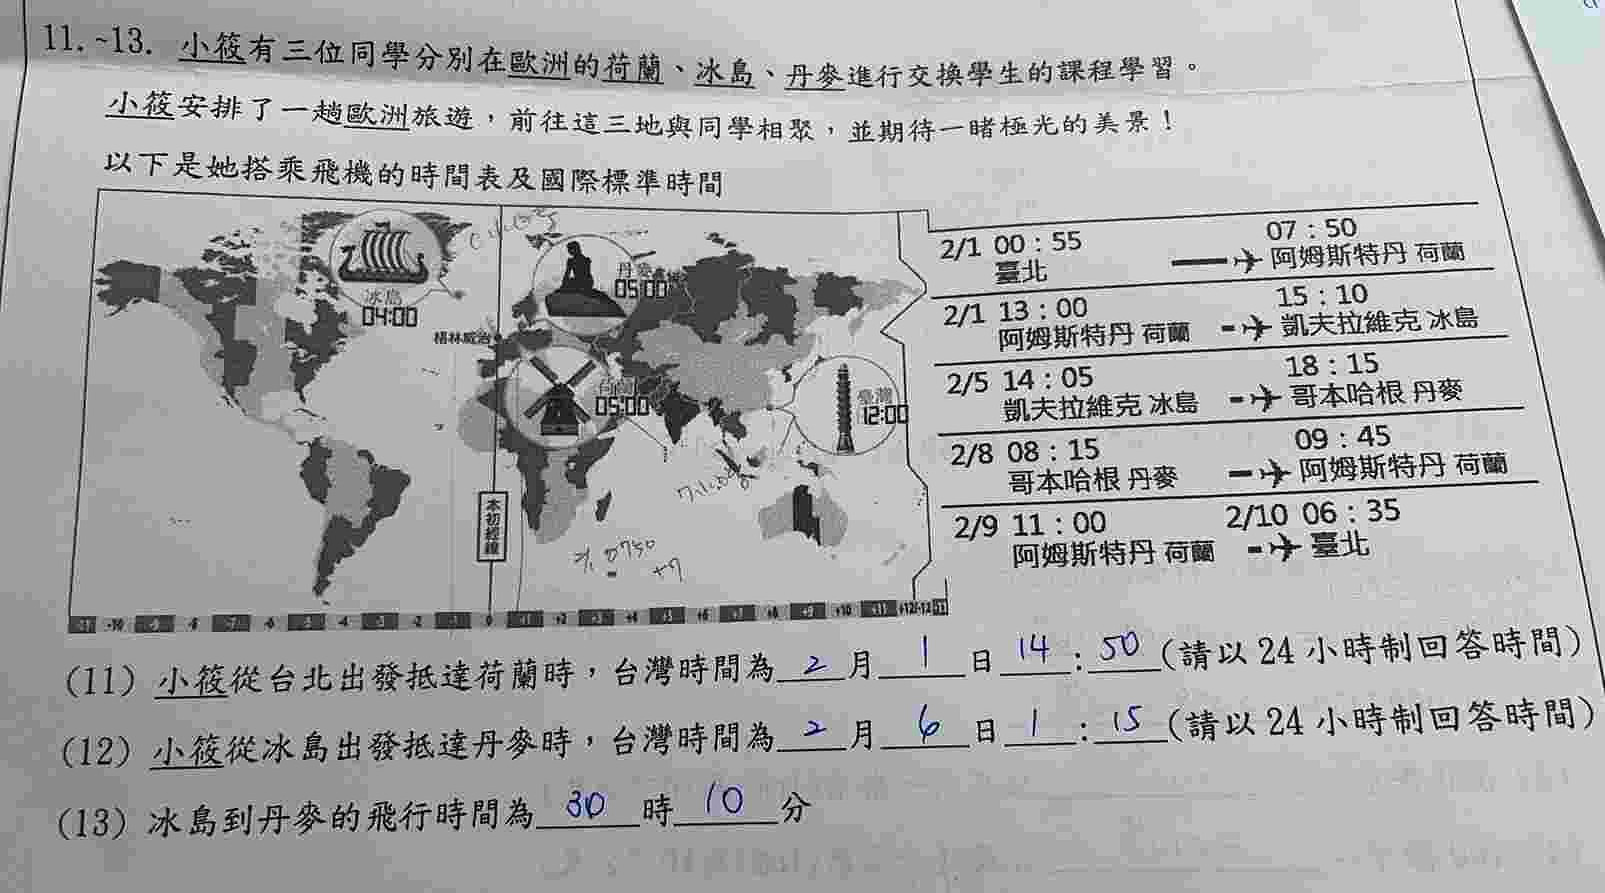 11.~13. 小筱有三位同學分別在歐洲的荷蘭、冰島、丹麥進行交換學生的課程學習。
小筱安排了一趟歐洲旅遊，前往這三地與同學相聚，並期待一睹極光的美景！
以下是她搭乘飛機的時間表及國際標準時間
冰島
04:00
丹麥
05:00
格林威治
荷蘭
05:00
臺灣
12:00
本初經線
0750
+7
-11 -10 -9 -8 -7 -6 -5 -4 -3 -2 -1 0 +1 +2 +3 +4 +5 +6 +7 +8 +9 +10 +11 +12/-12 -11
2/1 00：55 07：50
臺北 阿姆斯特丹 荷蘭
2/1 13：00 15：10
阿姆斯特丹 荷蘭 凱夫拉維克 冰島
2/5 14：05 18：15
凱夫拉維克 冰島 哥本哈根 丹麥
2/8 08：15 09：45
哥本哈根 丹麥 阿姆斯特丹 荷蘭
2/9 11：00 2/10 06：35
阿姆斯特丹 荷蘭 臺北
(11) 小筱從台北出發抵達荷蘭時，台灣時間為 2 月 1 日 14 : 50 (請以 24 小時制回答時間)
(12) 小筱從冰島出發抵達丹麥時，台灣時間為 2 月 6 日 1 : 15 (請以 24 小時制回答時間)
(13) 冰島到丹麥的飛行時間為 30 時 10 分